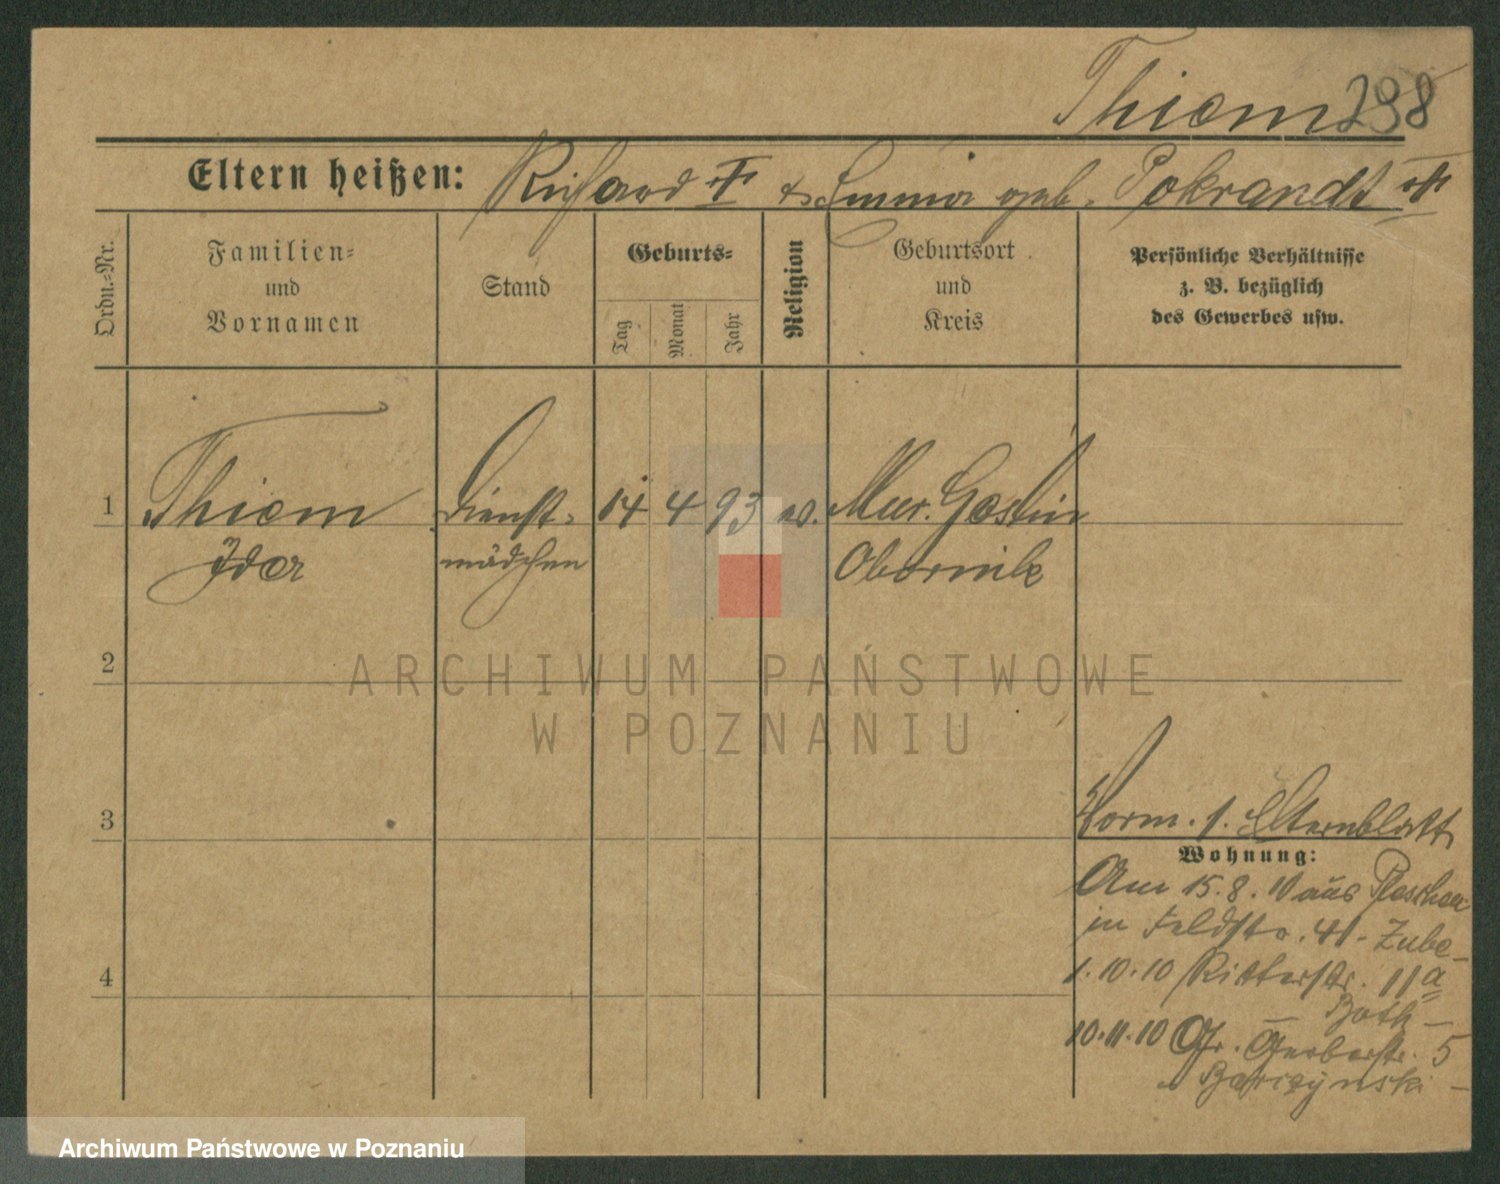 Thiem 298
Eltern heißen: Richard † & Emma geb. Pokrandt †
Ordn.-Nr.
Familien- und Vornamen
Stand
Geburts-
Tag
Monat
Jahr
Religion
Geburtsort und Kreis
Persönliche Verhältnisse z. B. bezüglich des Gewerbes usw.
1 Thiem Dienst- 14 4 93 ev. Mur. Goslin
Ida mädchen Obornik
2
3
4
Norm. 1. Elternblatt
Wohnung:
Am 15.8.10 aus Pleschen
in Feldstr. 41 - Zube -
1.10.10 Ritterstr. 11a
- Both -
10.11.10 Gr. Gerberstr. 5
- Barczynski -
ARCHIWUM PAŃSTWOWE
W POZNANIU
Archiwum Państwowe w Poznaniu